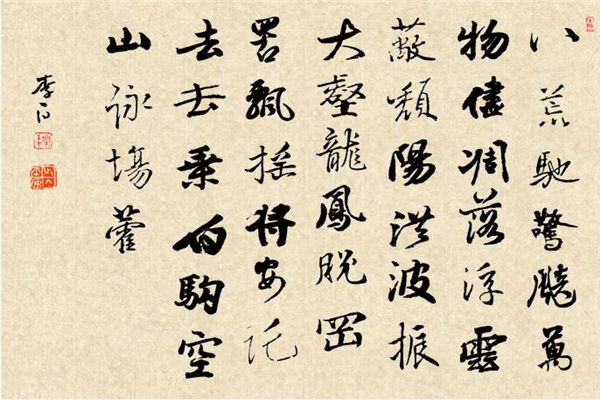 八荒馳驚飈萬
物儘凋落浮雲
蔽頹陽洪波振
大壑龍鳳脫罔
罟飄搖將安託
去去乘伯駒空
山詠場藿
李白